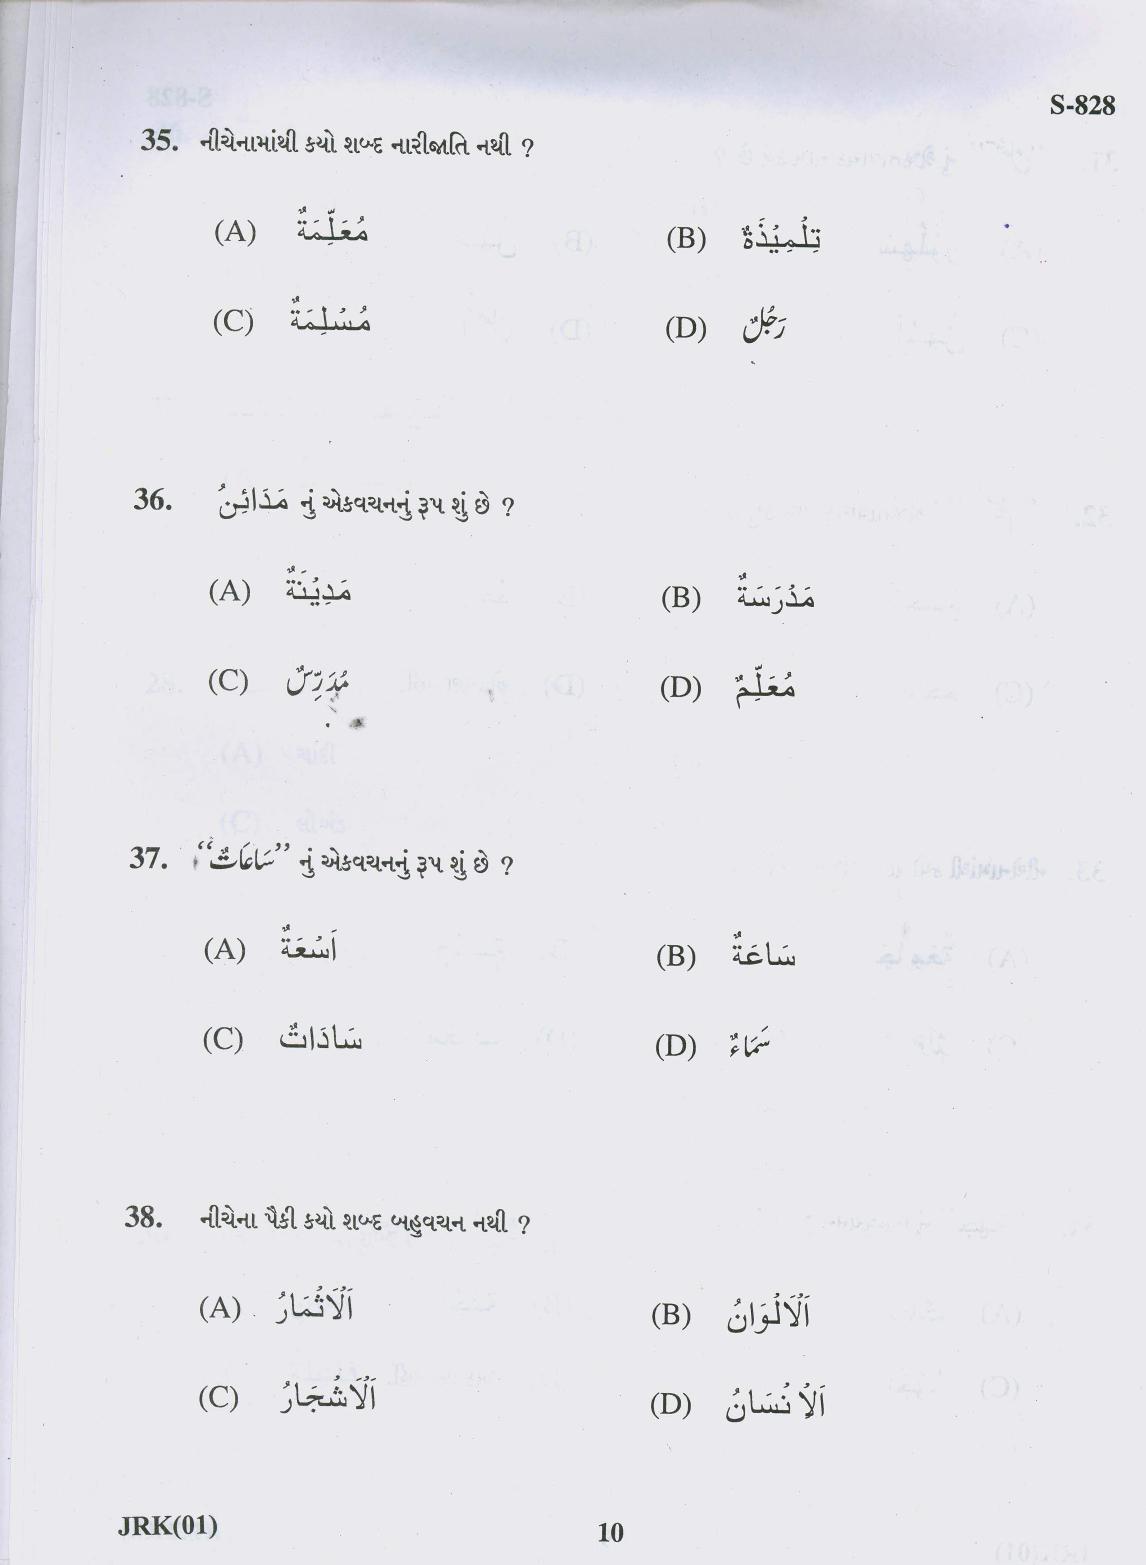 S-828
35. નીચેનામાંથી કયો શબ્દ નારીજાતિ નથી ?
(A) مُعَلِّمَةٌ (B) تِلْمِيْذَةٌ
(C) مُسْلِمَةٌ (D) رَجُلٌ
36. مَدَائِنُ નું એકવચનનું રૂપ શું છે ?
(A) مَدِيْنَةٌ (B) مَدْرَسَةٌ
(C) مُدَرِّسٌ (D) مُعَلِّمٌ
37. “سَاعَاتٌ” નું એકવચનનું રૂપ શું છે ?
(A) اَسْعَةٌ (B) سَاعَةٌ
(C) سَادَاتٌ (D) سَمَاءٌ
38. નીચેના પૈકી કયો શબ્દ બહુવચન નથી ?
(A) اَلْاَثْمَارُ (B) اَلْاَلْوَانُ
(C) اَلْاَشْجَارُ (D) اَلْاِنْسَانُ
JRK(01) 10